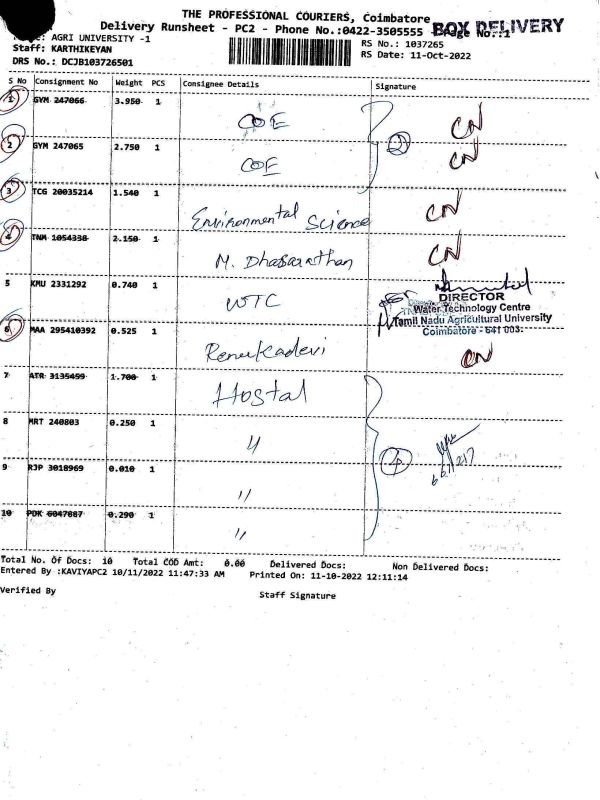 THE PROFESSIONAL COURIERS, Coimbatore
BOX DELIVERY
Delivery Runsheet - PC2 - Phone No.:0422-3505555 - Page No.:1
AGRI UNIVERSITY -1
RS No.: 1037265
Staff: KARTHIKEYAN
RS Date: 11-Oct-2022
DRS No.: DCJB103726501
S No Consignment No Weight PCS Consignee Details Signature
1 GYM 247066 3.950 1 COE CN
2 GYM 247065 2.750 1 COE CN
2
3 TCG 20035214 1.540 1 Environmental Science CN
4 TNM 1054338 2.150 1 M. Dhasarathan CN
5 KMU 2331292 0.740 1 WTC
DIRECTOR
Water Technology Centre
Tamil Nadu Agricultural University
Coimbatore - 641 003.
6 MAA 295410392 0.525 1 Renukadevi CN
7 ATR 3135499 1.700 1 Hostal
8 MRT 240803 0.250 1 "
4
9 RJP 3018969 0.010 1 "
10 PDK 6047087 0.290 1 "
Total No. Of Docs: 10 Total COD Amt: 0.00 Delivered Docs: Non Delivered Docs:
Entered By :KAVIYAPC2 10/11/2022 11:47:33 AM Printed On: 11-10-2022 12:11:14
Verified By Staff Signature